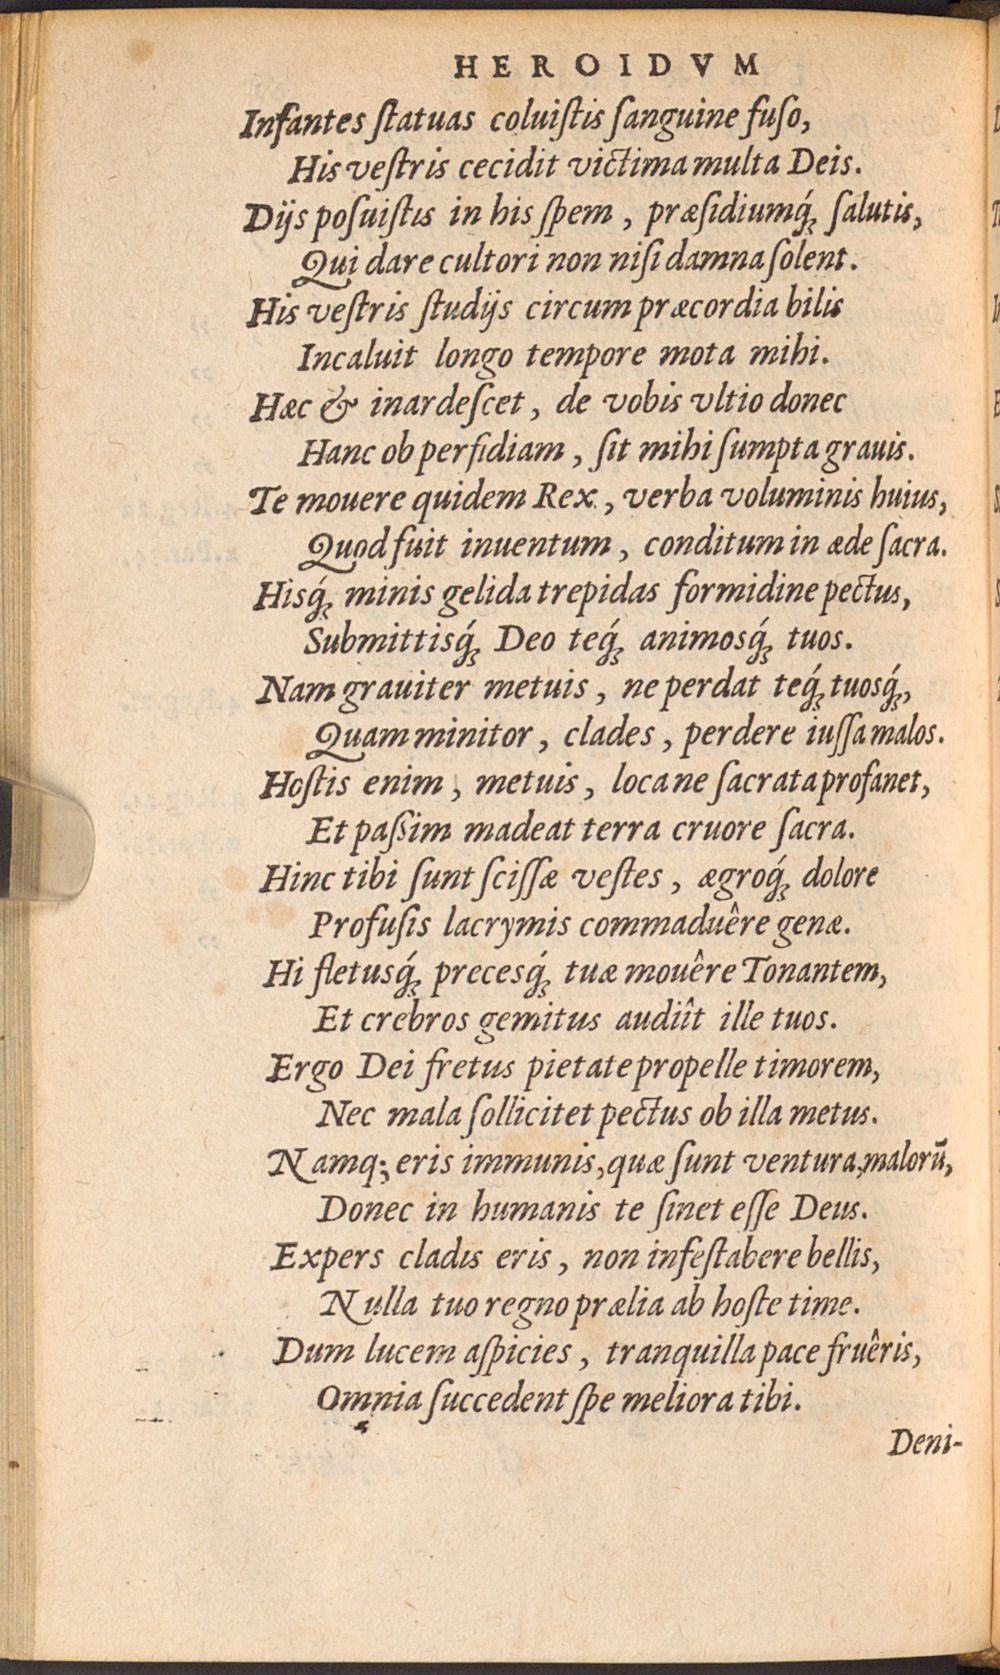 HEROIDVM
Infantes ſtatuas coluiſtis ſanguine fuſo,
His veſtris cecidit victima multa Deis.
Dijs poſuiſtis in his ſpem, præſidiumq́ꝫ ſalutis,
Qui dare cultori non niſi damna ſolent.
His veſtris ſtudijs circum præcordia bilis
Incaluit longo tempore mota mihi.
Hæc & inardeſcet, de vobis vltio donec
Hanc ob perfidiam, ſit mihi ſumpta grauis.
Te mouere quidem Rex, verba voluminis huius,
Quod fuit inuentum, conditum in æde ſacra.
Hisq́ꝫ minis gelida trepidas formidine pectus,
Submittisq́ꝫ Deo teq́ꝫ animosq́ꝫ tuos.
Nam grauiter metuis, ne perdat teq́ꝫ tuosq́ꝫ,
Quam minitor, clades, perdere iuſſa malos.
Hoſtis enim, metuis, loca ne ſacrata profanet,
Et paßim madeat terra cruore ſacra.
Hinc tibi ſunt ſciſſæ veſtes, ægroq́ꝫ dolore
Profuſis lacrymis commaduêre genæ.
Hi fletusq́ꝫ precesq́ꝫ tuæ mouêre Tonantem,
Et crebros gemitus audiît ille tuos.
Ergo Dei fretus pietate propelle timorem,
Nec mala ſollicitet pectus ob illa metus.
Namq; eris immunis, quæ ſunt ventura, malorū,
Donec in humanis te ſinet eſſe Deus.
Expers cladis eris, non infeſtabere bellis,
Nulla tuo regno prælia ab hoſte time.
Dum lucem aſpicies, tranquilla pace fruêris,
Omnia ſuccedent ſpe meliora tibi.
Deni-